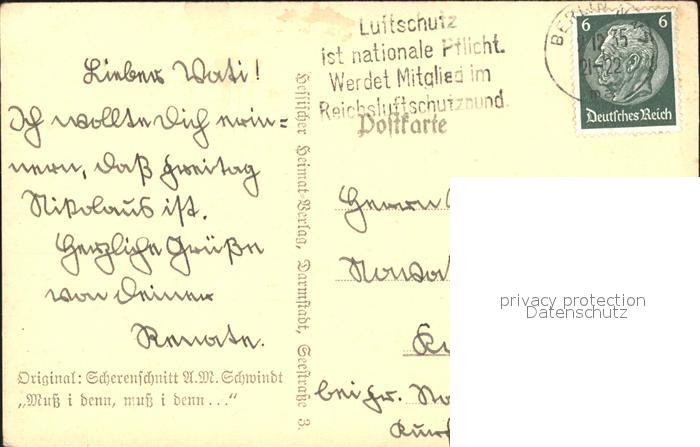 Luftschutz
ist nationale Pflicht.
Werdet Mitglied im
Reichsluftschutzbund.
BERLIN
12.35
21-22
6 6
Deutsches Reich
Postkarte
Lieber Vati!
Ich wollte Dich erin=
nern, daß Freitag
Nikolaus ist.
Herzliche Grüße
von Deiner
Renate.
Original: Scherenschnitt A.M. Schwindt
„Muß i denn, muß i denn..."
Hessischer Heimat-Verlag, Darmstadt, Seestraße 3.
Herrn
bei Fr.
privacy protection
Datenschutz